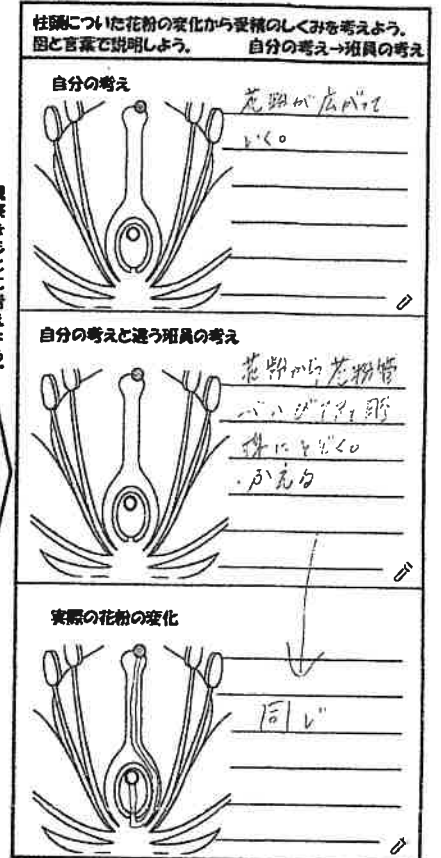 柱頭についた花粉の変化から受精のしくみを考えよう。
図と言葉で説明しよう。 自分の考え→班員の考え
自分の考え
花粉が広がって
いく。
自分の考えと違う班員の考え
花粉から、花粉管
がのびてきて、胚
珠にとどく。
・ふえる
実際の花粉の変化
同じ